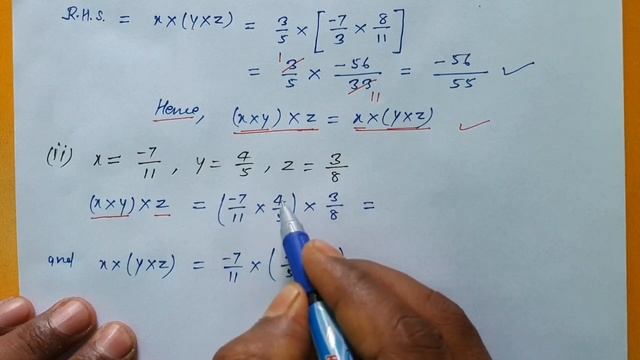 R.H.S. = x×(y×z) = 3/5 × [-7/3 × 8/11]
= 3/5 × -56/33 = -56/55 ✓
1 11
Hence, (x×y)×z = x×(y×z) ✓
(ii) x = -7/11, y = 4/5, z = 3/8
(x×y)×z = (-7/11 × 4/5) × 3/8 =
and x×(y×z) = -7/11 × (